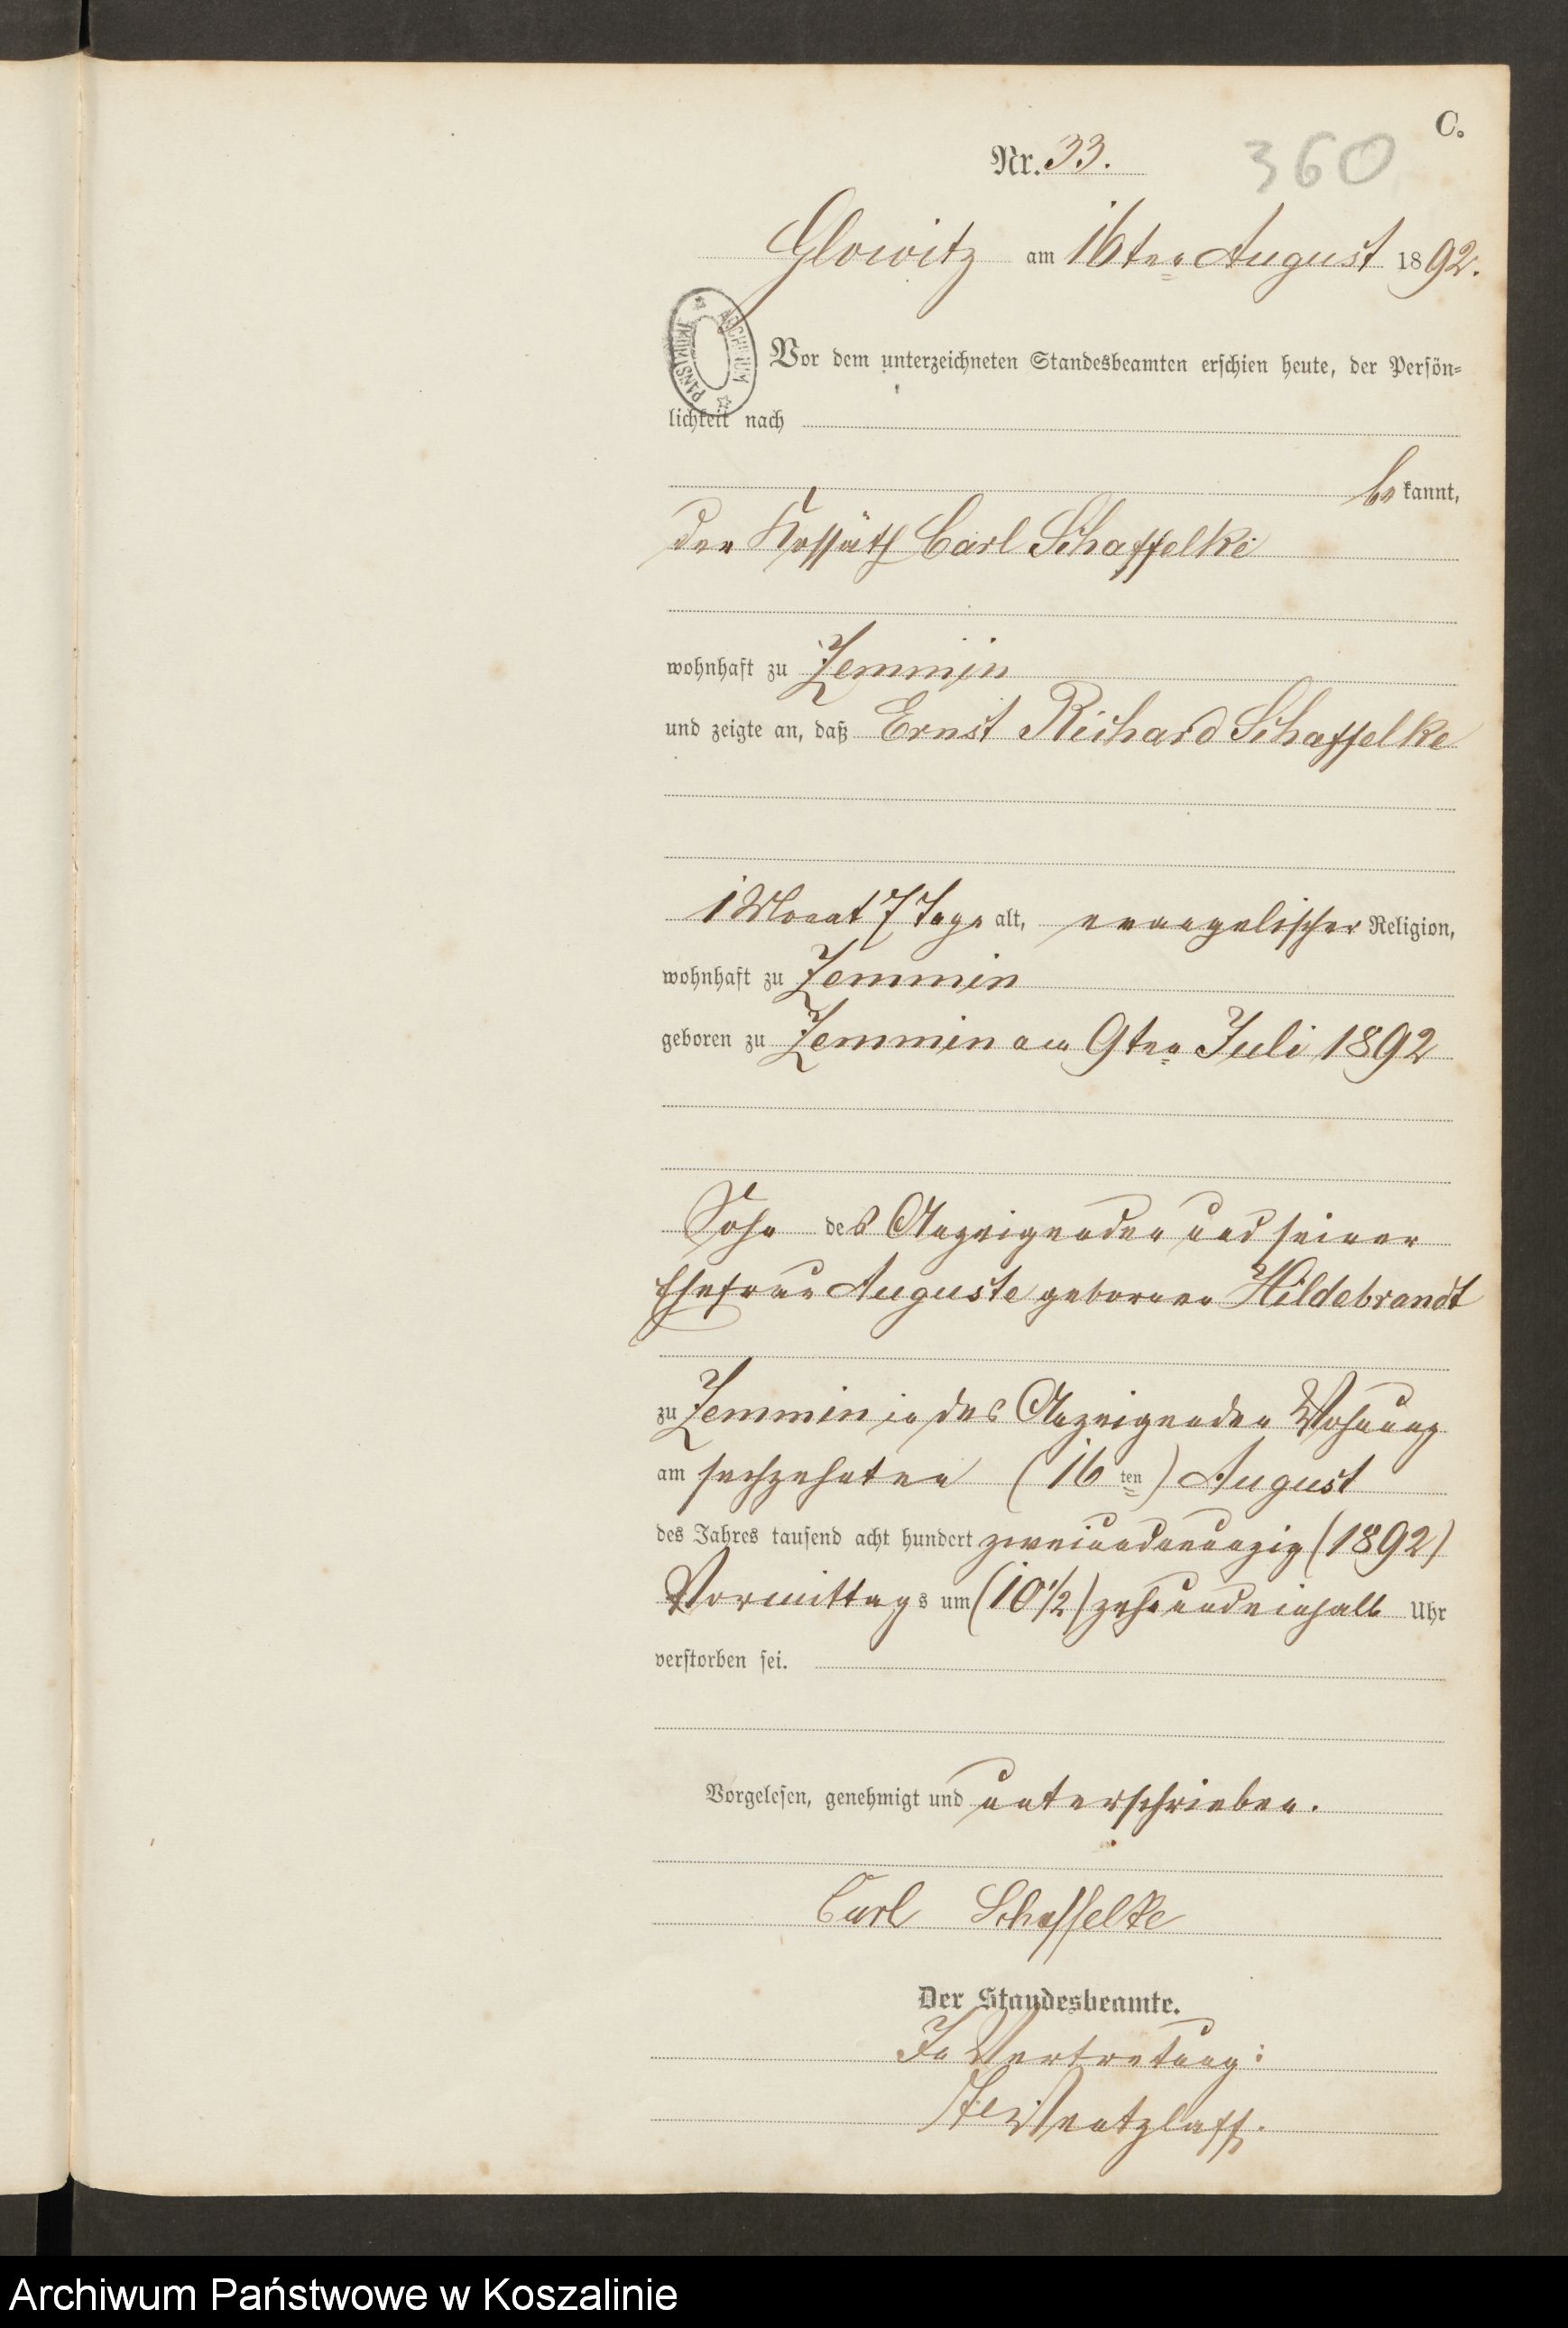 C.
Nr. 33.
360
Glowitz am 16ten August 1892.
Vor dem unterzeichneten Standesbeamten erschien heute, der Persön-
lichkeit nach
bekannt,
der Kossäth Carl Schaffelke
wohnhaft zu Zemmin
und zeigte an, daß Ernst Richard Schaffelke
1 Monat 7 Tage alt, evangelischer Religion,
wohnhaft zu Zemmin
geboren zu Zemmin am 9ten Juli 1892
Sohn des Anzeigenden und seiner
Ehefrau Auguste geborenen Hildebrandt
zu Zemmin in des Anzeigenden Wohnung
am sechzehnten (16ten) August
des Jahres tausend acht hundert zweiundneunzig (1892)
Vormittags um (10 1/2) zehnundeinhalb Uhr
verstorben sei.
Vorgelesen, genehmigt und unterschrieben.
Carl Schaffelke
Der Standesbeamte.
In Vertretung:
Wentzlaff.
ARCHIWUM PAŃSTW
Archiwum Państwowe w Koszalinie